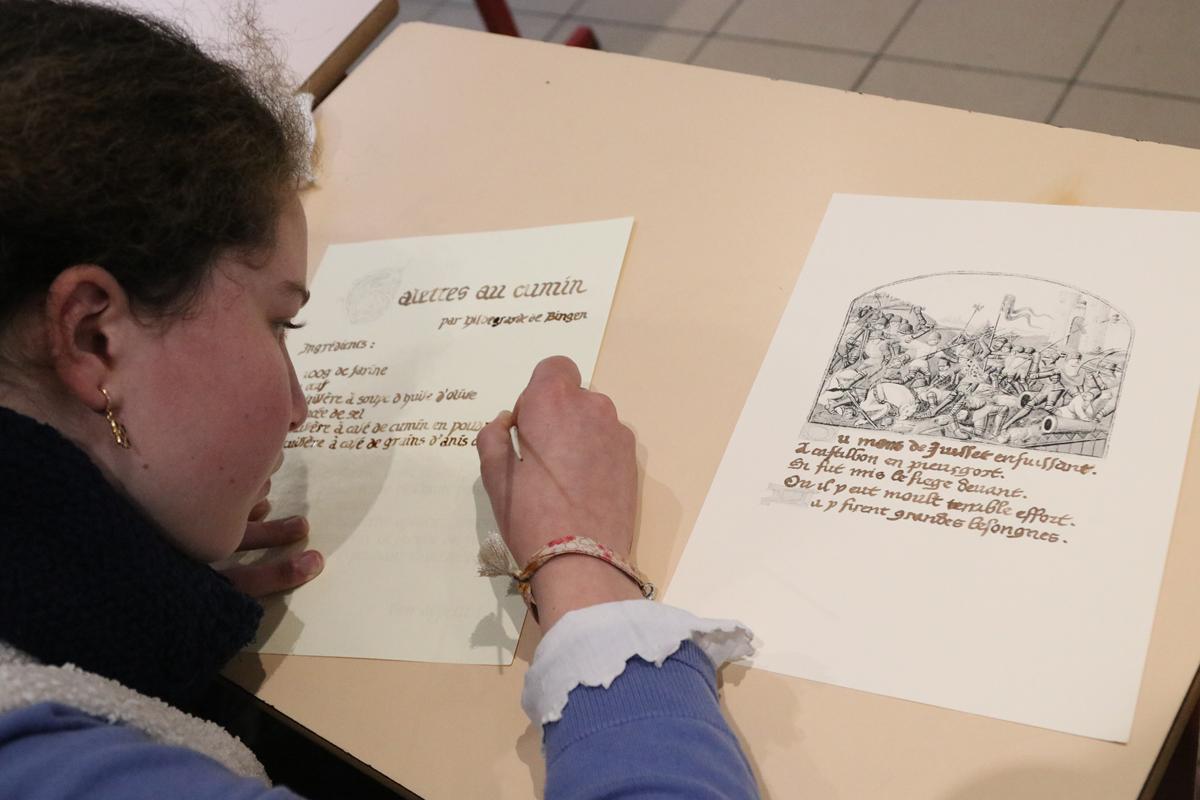 alettes au cumin
par Hildegarde de Bingen
Ingrédients :
100g de farine
œuf
à soupe d'huile d'olive
de sel
à café de cumin en
à café de grains d'anis
u mois de Juillet ensuissant.
A castillon en pieusgort.
En fut mis le siege devant.
Ou il y eut moult terrible effort.
u y firent grandes besongnes.